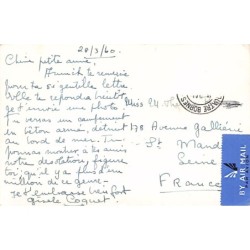 20/3/60.
Chère petite amie,
Annick te remercie
pour ta si gentille lettre.
Elle te répondra bientôt,
je t'envoie une photo.
Tu verras un campement
en béton armé, détruit
au bord de mer. Tu
pourras montrer à tes amis
notre désolation, figure
toi, qu'il y a plus d'un
million de ce genre.
Je t'embrasse bien fort
Gisèle Coquet
178 Avenue Galliéni
St Mandé
Seine
France
BY AIR MAIL